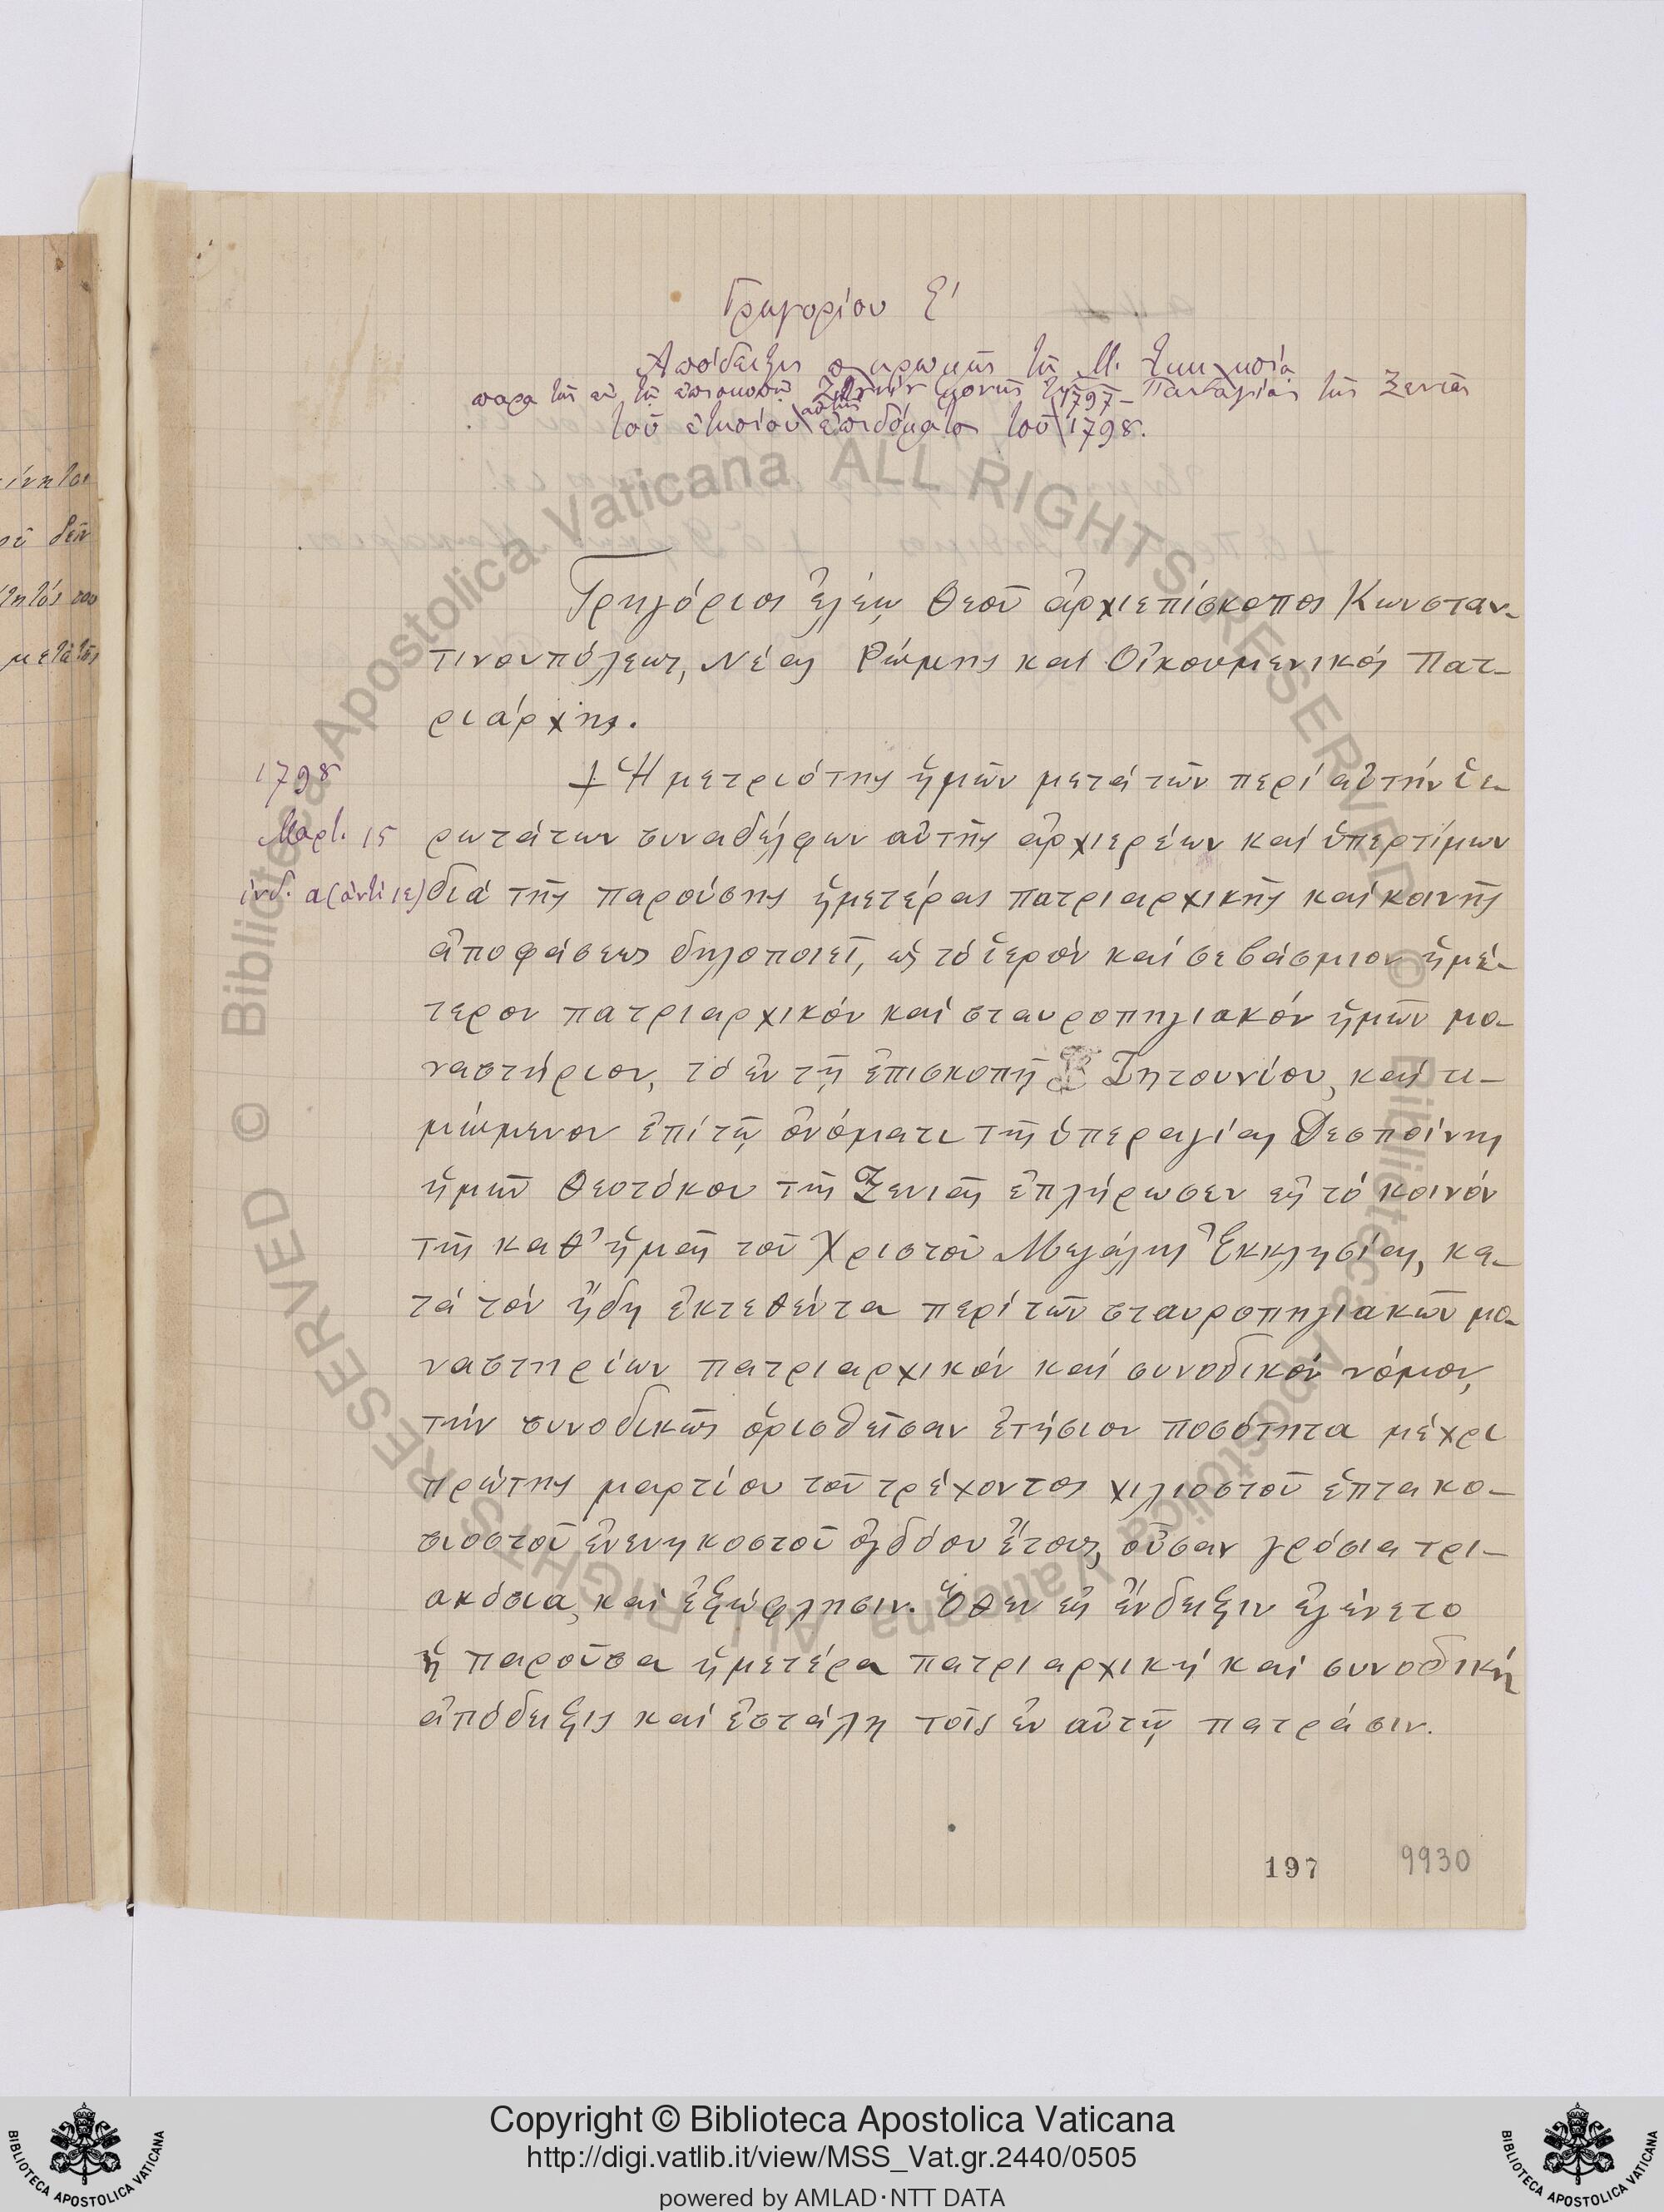 Γρηγορίου Ε′
Ἀπόδειξις πληρωμῆς τῇ Μ. Ἐκκλησίᾳ
παρὰ τῆς ἐν τῇ ἐπισκοπῇ μονῆς τῆς Παναγίας τῆς Ξενιᾶς
τοῦ ἐτησίου αὐτῆς ἐπιδόματος τοῦ 1797–1798.
Γρηγόριος ἐλέῳ Θεοῦ ἀρχιεπίσκοπος Κωνσταν-
τινουπόλεως, Νέας Ρώμης καὶ Οἰκουμενικός Πατ-
ριάρχης.
1798
Μαρτ. 15
ἰνδ. α (ἀντὶ ιε)
+ Ἡ μετριότης ἡμῶν μετά τῶν περί αὐτήν ἱε-
ρωτάτων συναδέλφων αὐτῆς ἀρχιερέων καί ὑπερτίμων
διά τῆς παρούσης ἡμετέρας πατριαρχικῆς καί κοινῆς
ἀποφάσεως δηλοποιεῖ, ὡς τό ἱερόν καί σεβάσμιον ἡμέ-
τερον πατριαρχικόν καί σταυροπηγιακόν ἡμῶν μο-
ναστήριον, τό ἐν τῇ ἐπισκοπῇ Ζητουνίου, καί τι-
μώμενον ἐπί τῷ ὀνόματι τῆς ὑπεραγίας Δεσποίνης
ἡμῶν Θεοτόκου τῆς Ξενιᾶς ἐπλήρωσεν εἰς τό κοινόν
τῆς καθ' ἡμᾶς τοῦ Χριστοῦ Μεγάλης Ἐκκλησίας, κα-
τά τόν ἤδη ἐκτεθέντα περί τῶν σταυροπηγιακῶν μο-
ναστηρίων πατριαρχικόν καί συνοδικόν νόμον,
τήν συνοδικῶς ὁρισθεῖσαν ἐτήσιον ποσότητα μέχρι
πρώτης μαρτίου τοῦ τρέχοντος χιλιοστοῦ ἑπτακο-
σιοστοῦ ἐνενηκοστοῦ ὀγδόου ἔτους, οὖσαν γρόσια τρι-
ακόσια, καί ἐξώφλησιν. Ὅθεν εἰς ἔνδειξιν ἐγένετο
ἡ παροῦσα ἡμετέρα πατριαρχική καί συνοδική
ἀπόδειξις καί ἐστάλη τοῖς ἐν αὐτῷ πατράσιν.
197 9930
© Biblioteca Apostolica Vaticana ALL RIGHTS RESERVED
© Biblioteca Apostolica Vaticana ALL RIGHTS RESERVED
Copyright © Biblioteca Apostolica Vaticana
http://digi.vatlib.it/view/MSS_Vat.gr.2440/0505
powered by AMLAD·NTT DATA
BIBLIOTECA APOSTOLICA VATICANA
BIBLIOTECA APOSTOLICA VATICANA